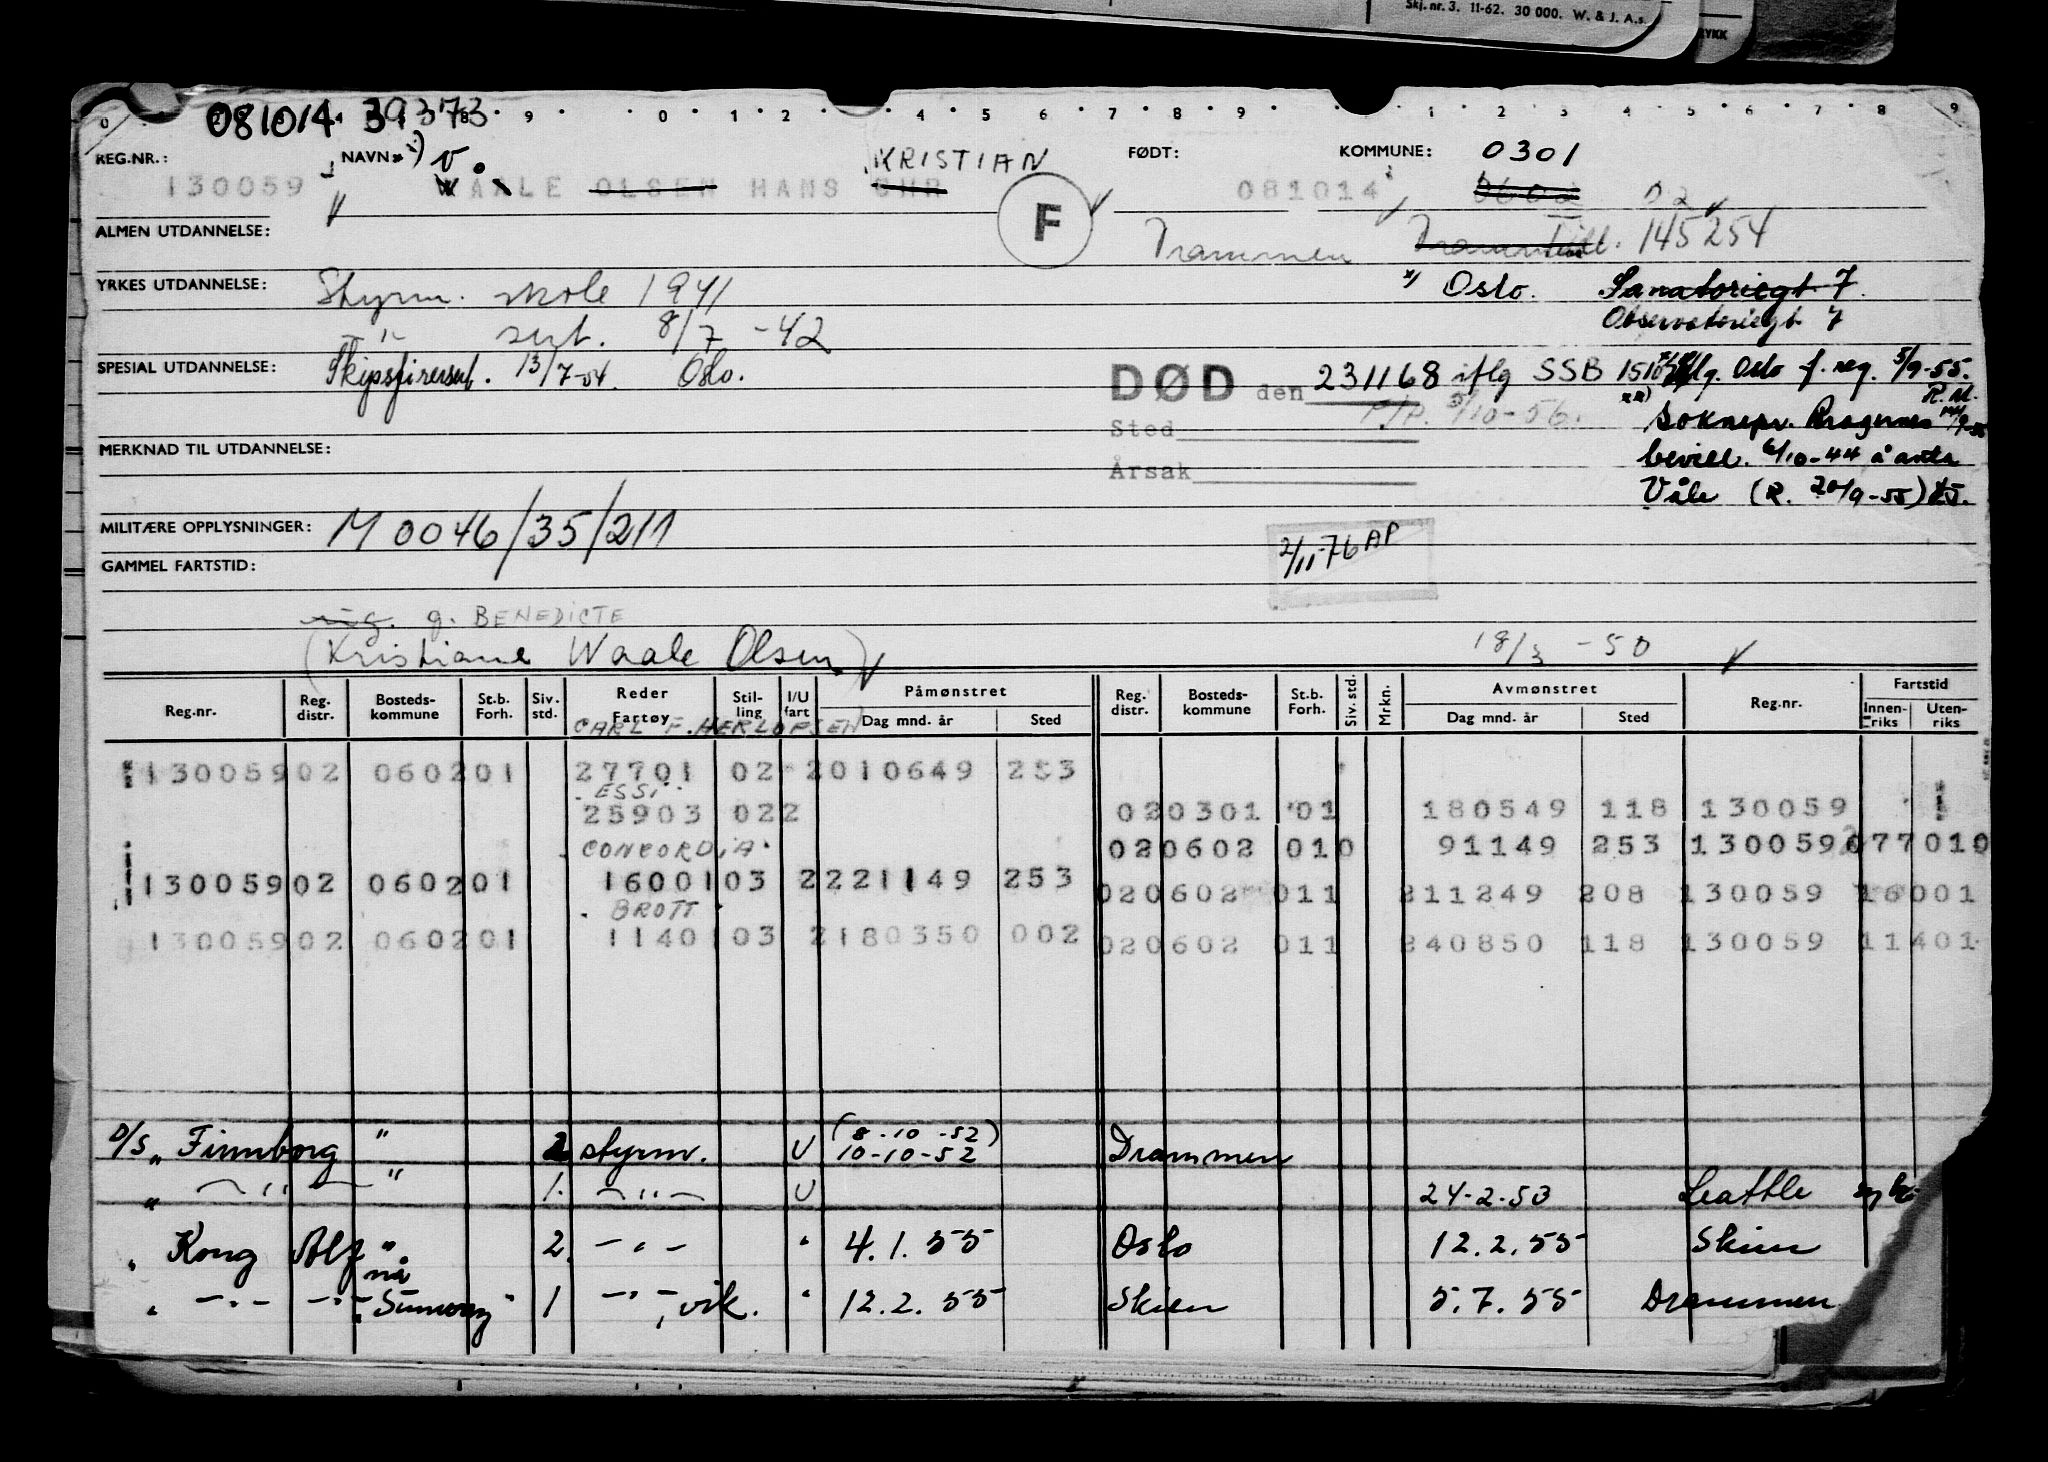 Skj. nr. 3. 11-62. 30 000. W. & J. A.s.
081014 39373
REG.NR.: NAVN V. KRISTIAN FØDT: KOMMUNE: 0301
130059 WAALE OLSEN HANS CHR 081014 0602 02
F
ALMEN UTDANNELSE: Drammen 145254
YRKES UTDANNELSE: Styrm. skole 1941 x) Oslo. Sanatoriegt. 7.
- " - sert. 8/7 -42 Observatoriegt. 7
SPESIAL UTDANNELSE: Skipsførersert. 13/7-54. Oslo. DØD den 231168 iflg SSB iflg. Oslo f. reg. 5/9-55.
R.M.
F/P. 5/10-56. xx) Soknepr. Bragernes
Sted
MERKNAD TIL UTDANNELSE: bevill. 6/10-44 å anta
Årsak
Våle (R. 20/9-55)
MILITÆRE OPPLYSNINGER: M 0046/35/211
2/11-76 AP
GAMMEL FARTSTID:
g. BENEDICTE
(Kristiane Waale Olsen) 18/3 -50
Reg.nr. Reg. distr. Bosteds-kommune St.b. Forh. Siv. std. Reder Fartøy Stil-ling I/U fart Påmønstret Dag mnd. år Sted Reg. distr. Bosteds-kommune St.b. Forh. Siv. std. Mrkn. Avmønstret Dag mnd. år Sted Reg.nr. Fartstid Innen-riks Uten-riks
CARL F. HERLOFSEN
130059 02 0602 01 27701 02 2 010649 253
ESSI
25903 02 2 02 0301 01 180549 118 130059
CONCORDIA
02 0602 01 0 91149 253 130059 077010
130059 02 0602 01 16001 03 2 221149 253 02 0602 01 1 211249 208 130059 16001
BROTT
130059 02 0602 01 11401 03 2 180350 002 02 0602 01 1 240850 118 130059 11401
(8-10-52)
D/S " Finnborg " 2 styrm. U 10-10-52 Drammen
" - " - " 1. - " - U 24-2-53 Seattle
" Kong Alf " 2. - " - " 4.1.55 Oslo 12.2.55 Skien
nå
" - " - - " - Sunvang " 1 - " - , vik. " 12.2.55 Skien 5.7.55 Drammen